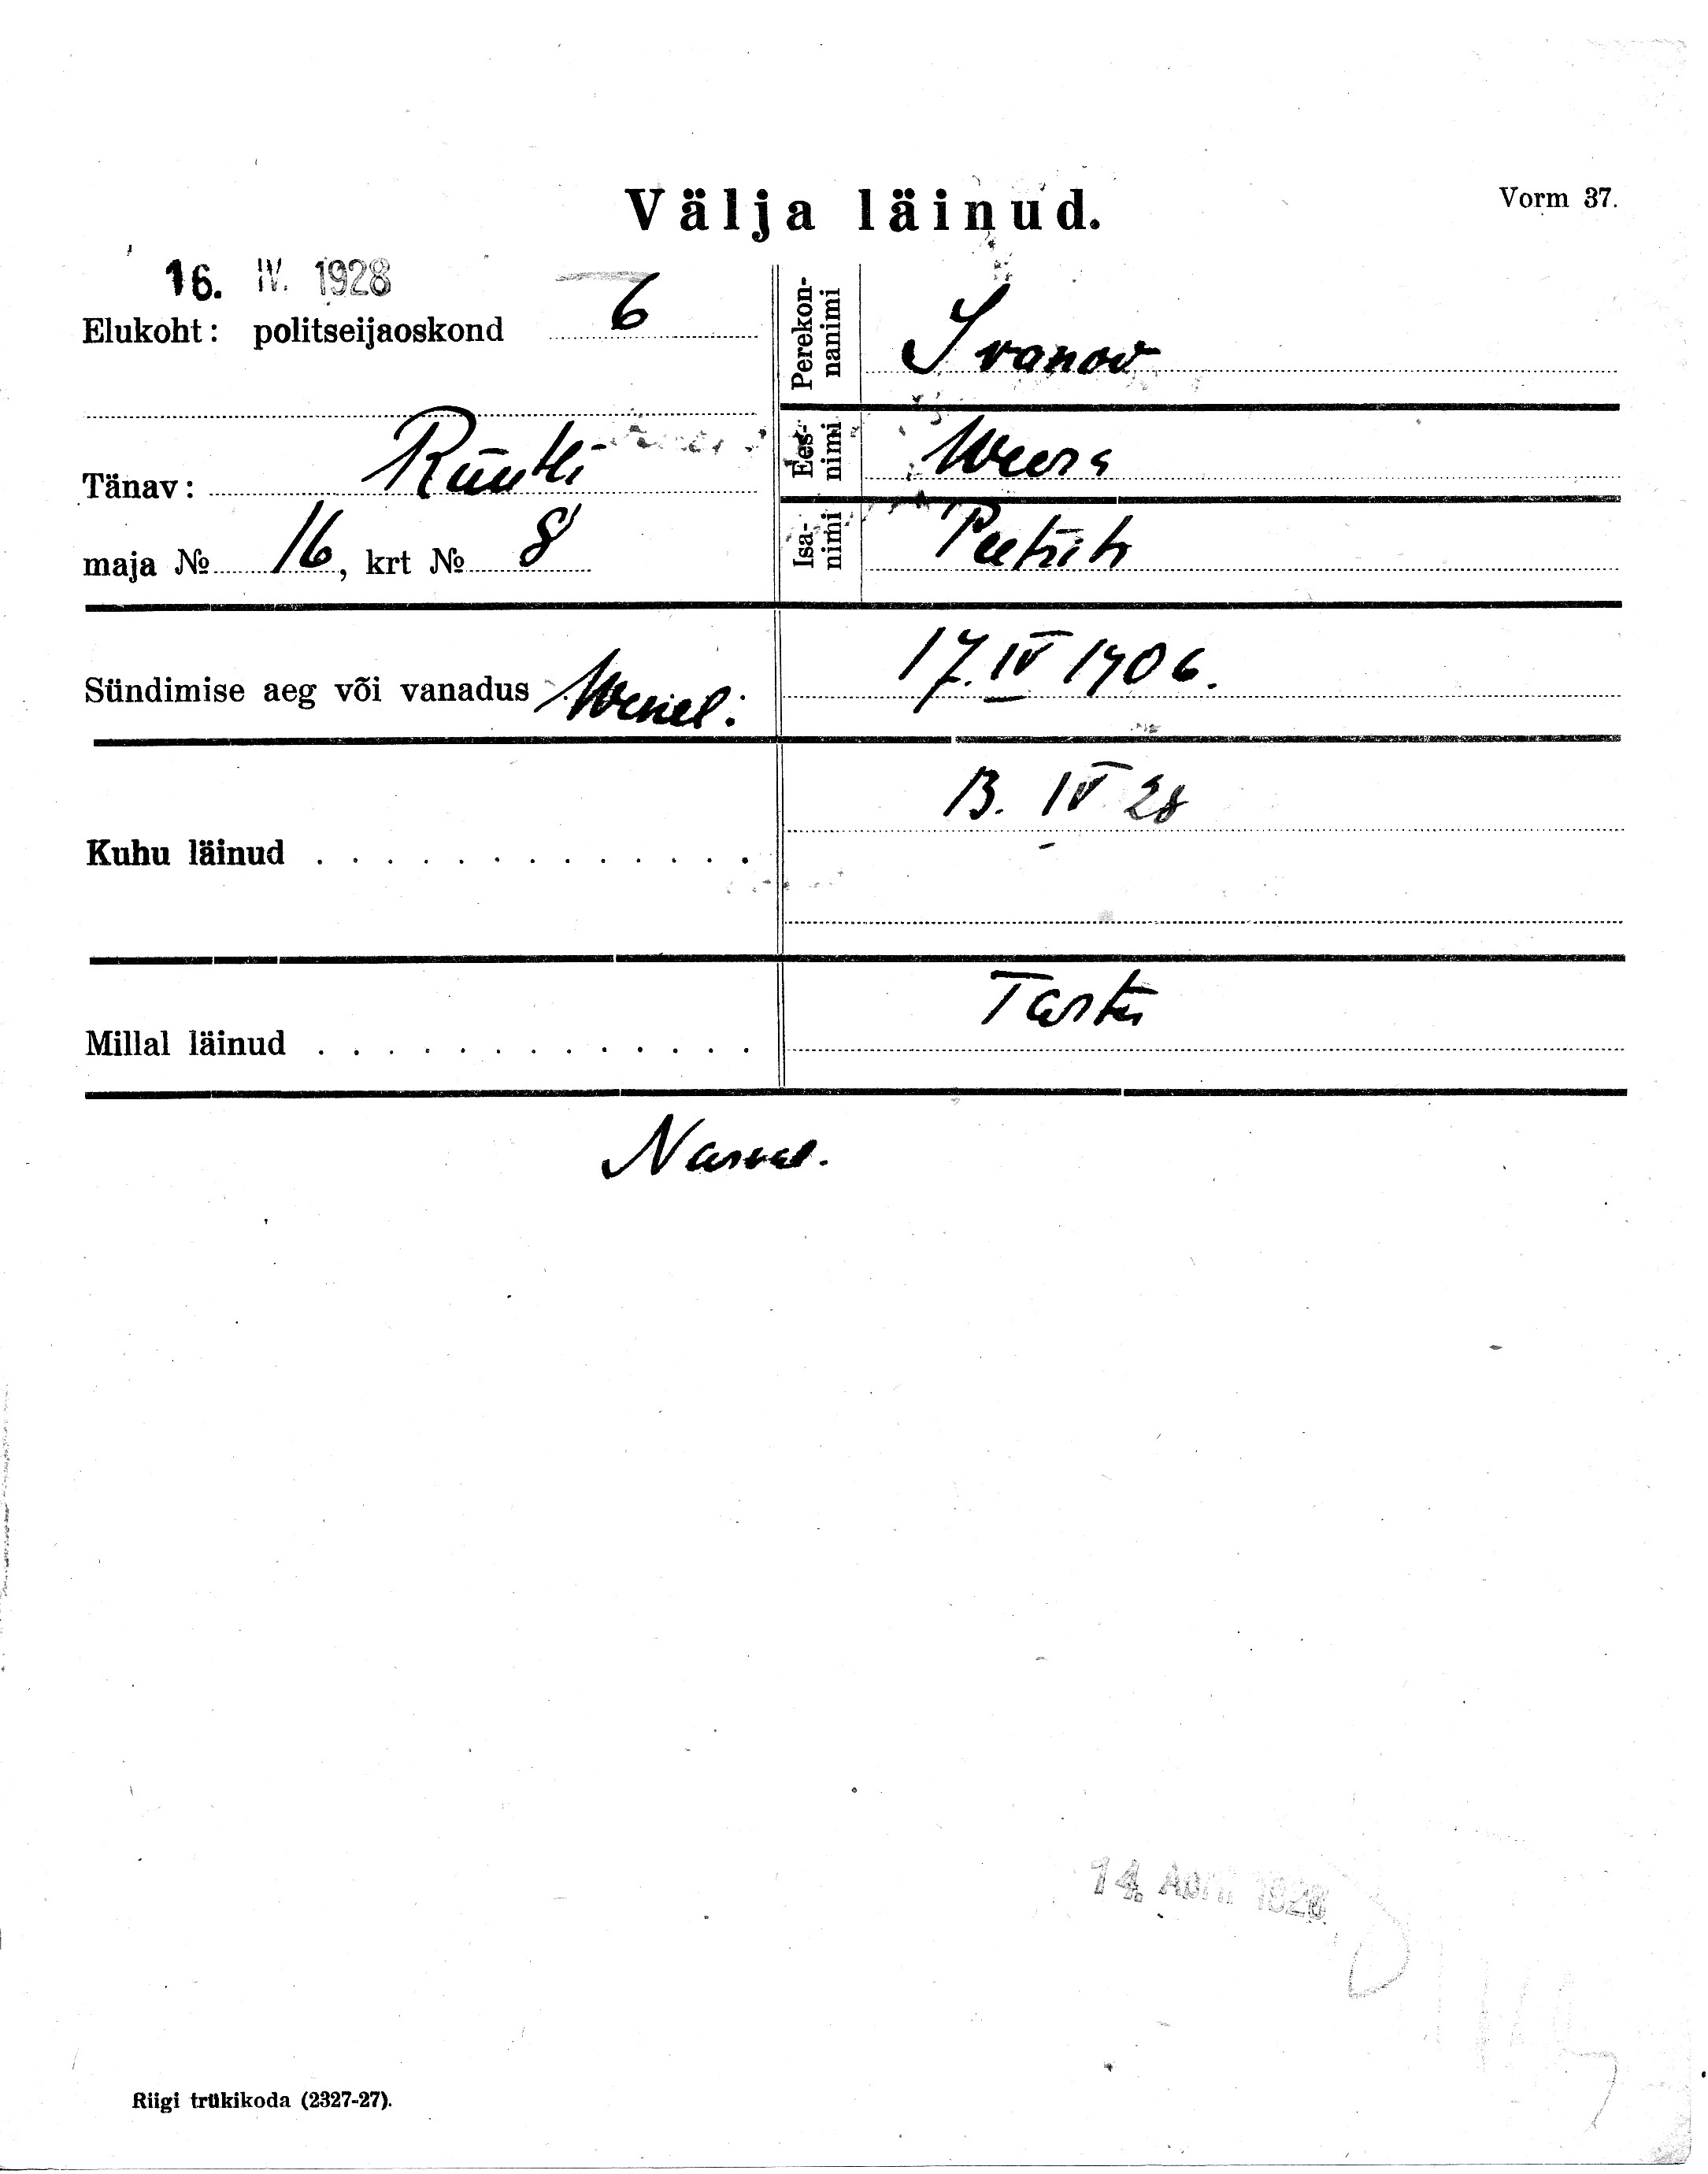 Välja läinud.
Vorm 37.
16. IV. 1928
Elukoht: politseijaoskond 6
Tänav: Rüütli
maja № 16, krt № 8
Perekonnanimi Ivanov
Eesnimi Weera
Isanimi Peetri t
Sündimise aeg või vanadus Wenel. 17. IV 1906.
Kuhu läinud 13. IV 28
Millal läinud Tartu
Narva.
14. April 1928
Riigi trükikoda (2327-27).